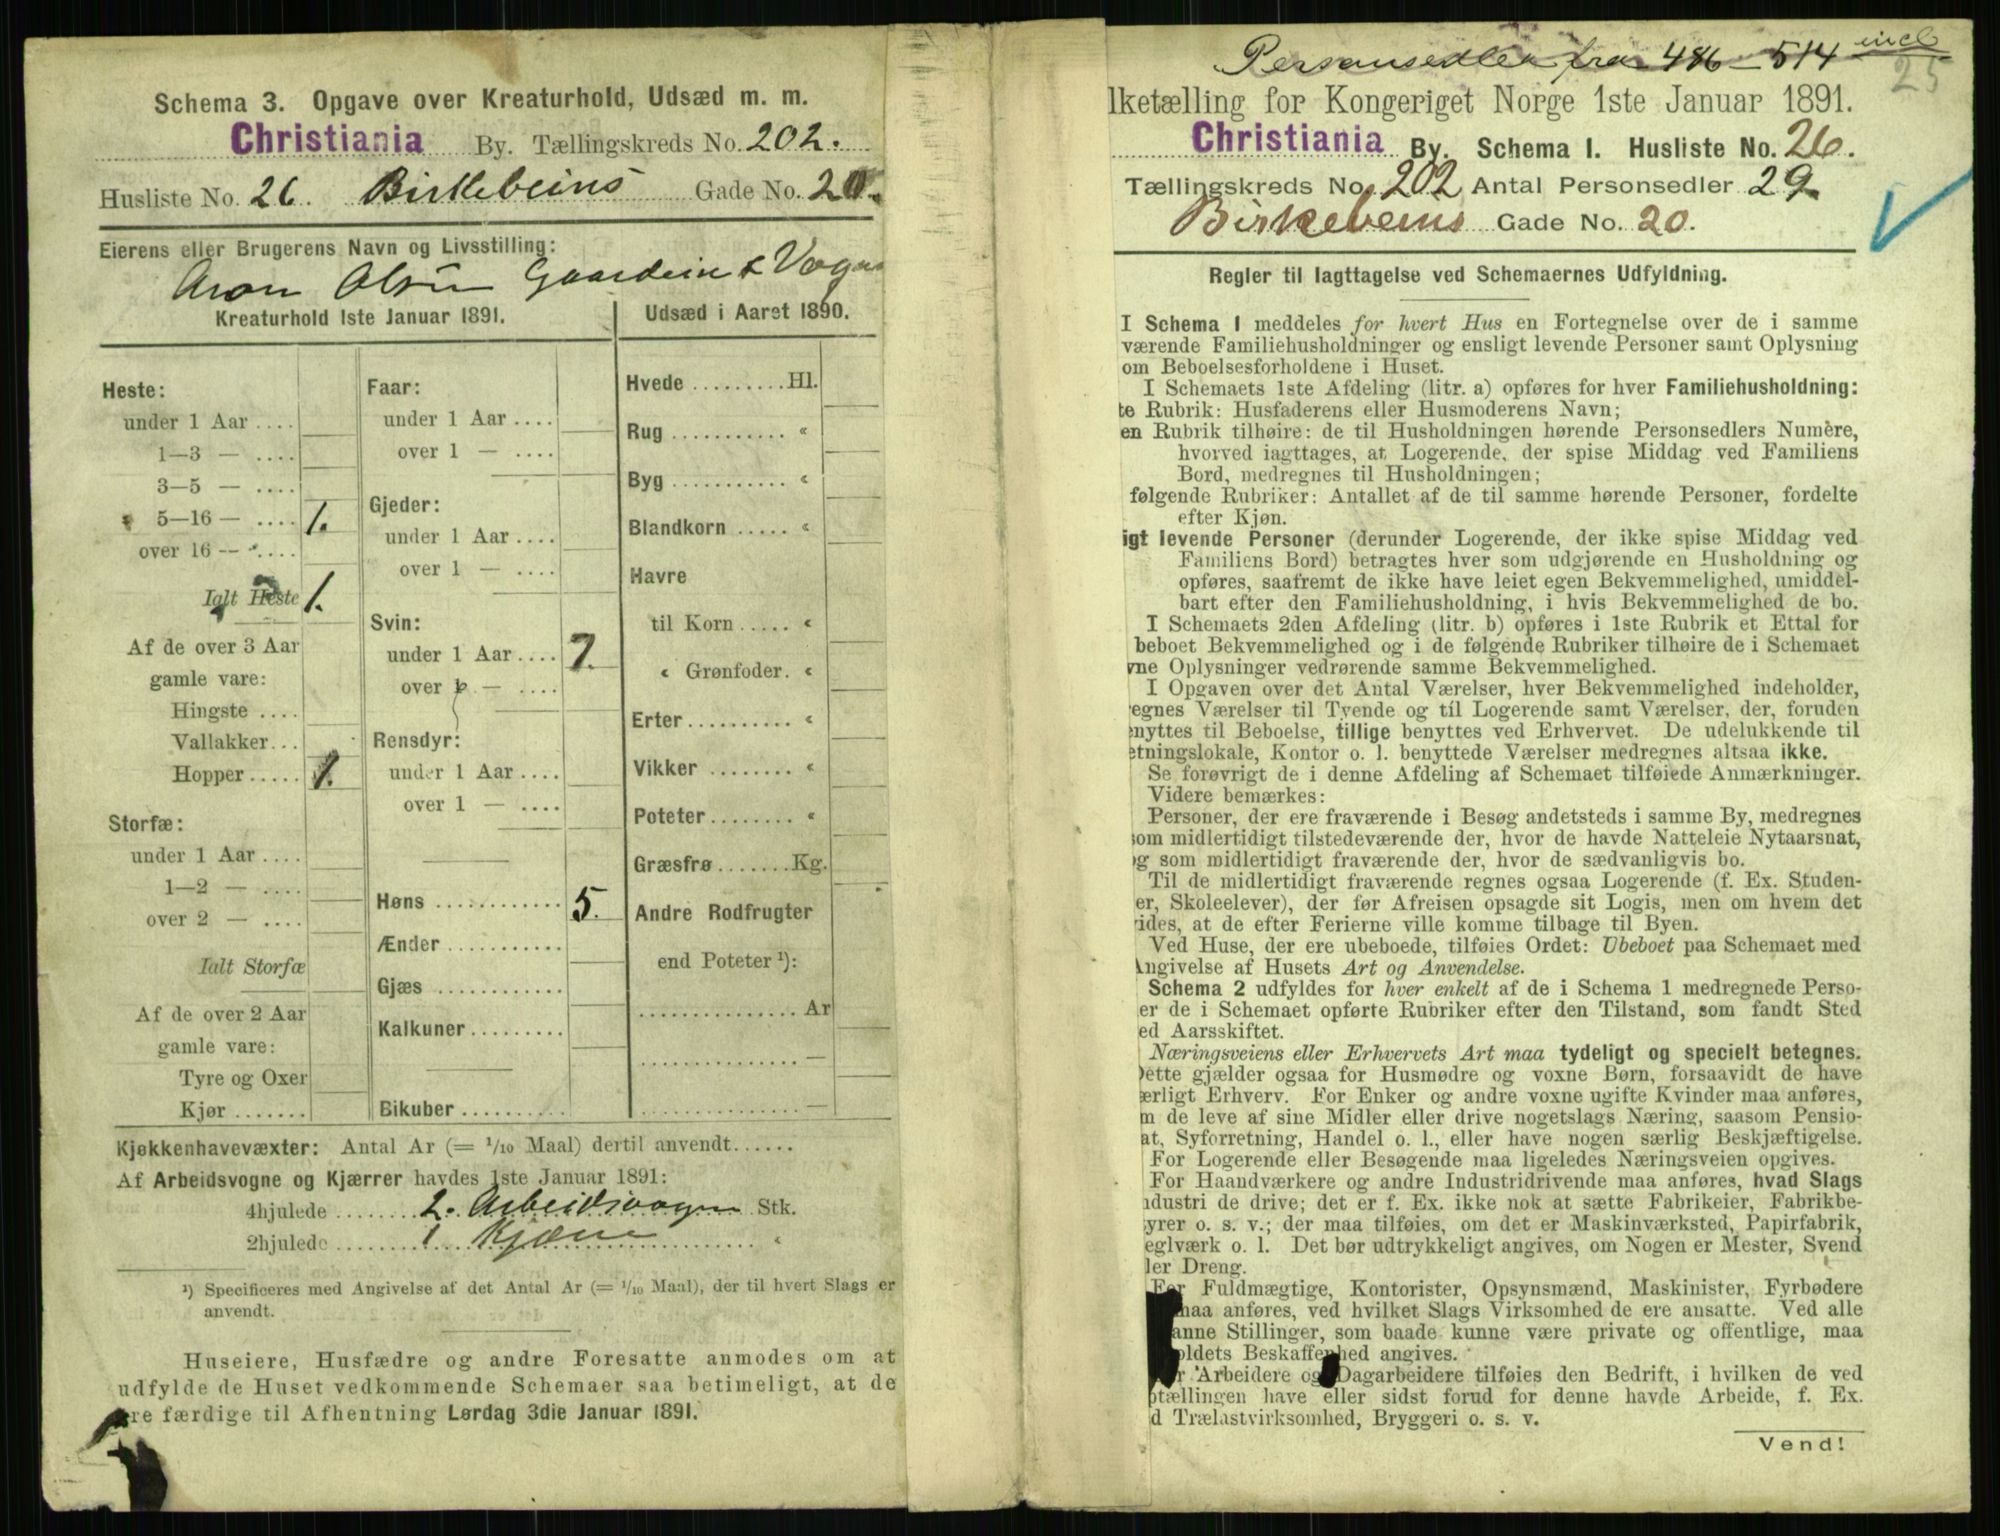 Schema 3. Opgave over Kreaturhold, Udsæd m. m.
Christiania By. Tællingskreds No. 202.
Husliste No. 26. Birkebeins Gade No. 20.
Eierens eller Brugerens Navn og Livsstilling:
Aron Olsen
Kreaturhold 1ste Januar 1891.
Udsæd i Aaret 1890.
Heste:
under 1 Aar ....
1—3 — ....
3—5 — ....
5—16 — .... 1.
over 16 — ....
Ialt Heste 1.
Af de over 3 Aar
gamle vare:
Hingste ....
Vallakker...
Hopper ..... 1.
Storfæ:
under 1 Aar ....
1—2 — ....
over 2 — ....
Ialt Storfæ
Af de over 2 Aar
gamle vare:
Tyre og Oxer
Kjør .......
Faar:
under 1 Aar ....
over 1 — ....
Gjeder:
under 1 Aar ....
over 1 — ....
Svin:
under 1 Aar .... 7.
over — ....
Rensdyr:
under 1 Aar ....
over 1 — ....
Høns ............ 5.
Ænder ...........
Gjæs ............
Kalkuner .........
Bikuber ..........
Hvede ......... Hl.
Rug ........... «
Byg ........... «
Blandkorn ..... «
Havre
til Korn ..... «
« Grønfoder. «
Erter .......... «
Vikker ........ «
Poteter ........ «
Græsfrø ....... Kg.
Andre Rodfrugter
end Poteter ¹):
............... Ar
............... —
............... —
Kjøkkenhavevæxter: Antal Ar (= 1/10 Maal) dertil anvendt......
Af Arbeidsvogne og Kjærrer havdes 1ste Januar 1891:
4hjulede ........ 2. Arbeidsvogn Stk.
2hjulede ........ 1 Kjærre «
¹) Specificeres med Angivelse af det Antal Ar (= 1/10 Maal), der til hvert Slags er
anvendt.
Huseiere, Husfædre og andre Foresatte anmodes om at
udfylde de Huset vedkommende Schemaer saa betimeligt, at de
re færdige til Afhentning Lørdag 3die Januar 1891.
Personsedler fra 486 — 514 incl
25
lketælling for Kongeriget Norge 1ste Januar 1891.
Christiania By. Schema 1. Husliste No. 26.
Tællingskreds No. 202 Antal Personsedler 29
Birkebeins Gade No. 20.
Regler til Iagttagelse ved Schemaernes Udfyldning.
I Schema 1 meddeles for hvert Hus en Fortegnelse over de i samme
værende Familiehusholdninger og ensligt levende Personer samt Oplysning
om Beboelsesforholdene i Huset.
I Schemaets 1ste Afdeling (litr. a) opføres for hver Familiehusholdning:
te Rubrik: Husfaderens eller Husmoderens Navn;
en Rubrik tilhøire: de til Husholdningen hørende Personsedlers Numere,
hvorved iagttages, at Logerende, der spise Middag ved Familiens
Bord, medregnes til Husholdningen;
følgende Rubriker: Antallet af de til samme hørende Personer, fordelte
efter Kjøn.
igt levende Personer (derunder Logerende, der ikke spise Middag ved
Familiens Bord) betragtes hver som udgjørende en Husholdning og
opføres, saafremt de ikke have leiet egen Bekvemmelighed, umiddel-
bart efter den Familiehusholdning, i hvis Bekvemmelighed de bo.
I Schemaets 2den Afdeling (litr. b) opføres i 1ste Rubrik et Ettal for
beboet Bekvemmelighed og i de følgende Rubriker tilhøire de i Schemaet
vne Oplysninger vedrørende samme Bekvemmelighed.
I Opgaven over det Antal Værelser, hver Bekvemmelighed indeholder,
egnes Værelser til Tyende og til Logerende samt Værelser, der, foruden
nyttes til Beboelse, tillige benyttes ved Erhvervet. De udelukkende til
etningslokale, Kontor o. l. benyttede Værelser medregnes altsaa ikke.
Se forøvrigt de i denne Afdeling af Schemaet tilføiede Anmærkninger.
Videre bemærkes:
Personer, der ere fraværende i Besøg andetsteds i samme By, medregnes
som midlertidigt tilstedeværende der, hvor de havde Natteleie Nytaarsnat,
og som midlertidigt fraværende der, hvor de sædvanligvis bo.
Til de midlertidigt fraværende regnes ogsaa Logerende (f. Ex. Studen-
er, Skoleelever), der før Afreisen opsagde sit Logis, men om hvem det
rides, at de efter Ferierne ville komme tilbage til Byen.
Ved Huse, der ere ubeboede, tilføies Ordet: Ubeboet paa Schemaet med
Angivelse af Husets Art og Anvendelse.
Schema 2 udfyldes for hver enkelt af de i Schema 1 medregnede Perso-
er de i Schemaet opførte Rubriker efter den Tilstand, som fandt Sted
ed Aarsskiftet.
Næringsveiens eller Erhvervets Art maa tydeligt og specielt betegnes.
Dette gjælder ogsaa for Husmødre og voxne Børn, forsaavidt de have
ærligt Erhverv. For Enker og andre voxne ugifte Kvinder maa anføres,
m de leve af sine Midler eller drive nogetslags Næring, saasom Pensio-
at, Syforretning, Handel o. l., eller have nogen særlig Beskjæftigelse.
For Logerende eller Besøgende maa ligeledes Næringsveien opgives.
For Haandværkere og andre Industridrivende maa anføres, hvad Slags
ndustri de drive; det er f. Ex. ikke nok at sætte Fabrikeier, Fabrikbe-
yrer o. s. v.; der maa tilføies, om det er Maskinværksted, Papirfabrik,
eglværk o. l. Det bør udtrykkeligt angives, om Nogen er Mester, Svend
ler Dreng.
For Fuldmægtige, Kontorister, Opsynsmænd, Maskinister, Fyrbødere
maa anføres, ved hvilket Slags Virksomhed de ere ansatte. Ved alle
anne Stillinger, som baade kunne være private og offentlige, maa
oldets Beskaffenhed angives.
r Arbeidere og Dagarbeidere tilføies den Bedrift, i hvilken de ved
tællingen have eller sidst forud for denne havde Arbeide, f. Ex.
d Trælastvirksomhed, Bryggeri o. s. v.
Vend!